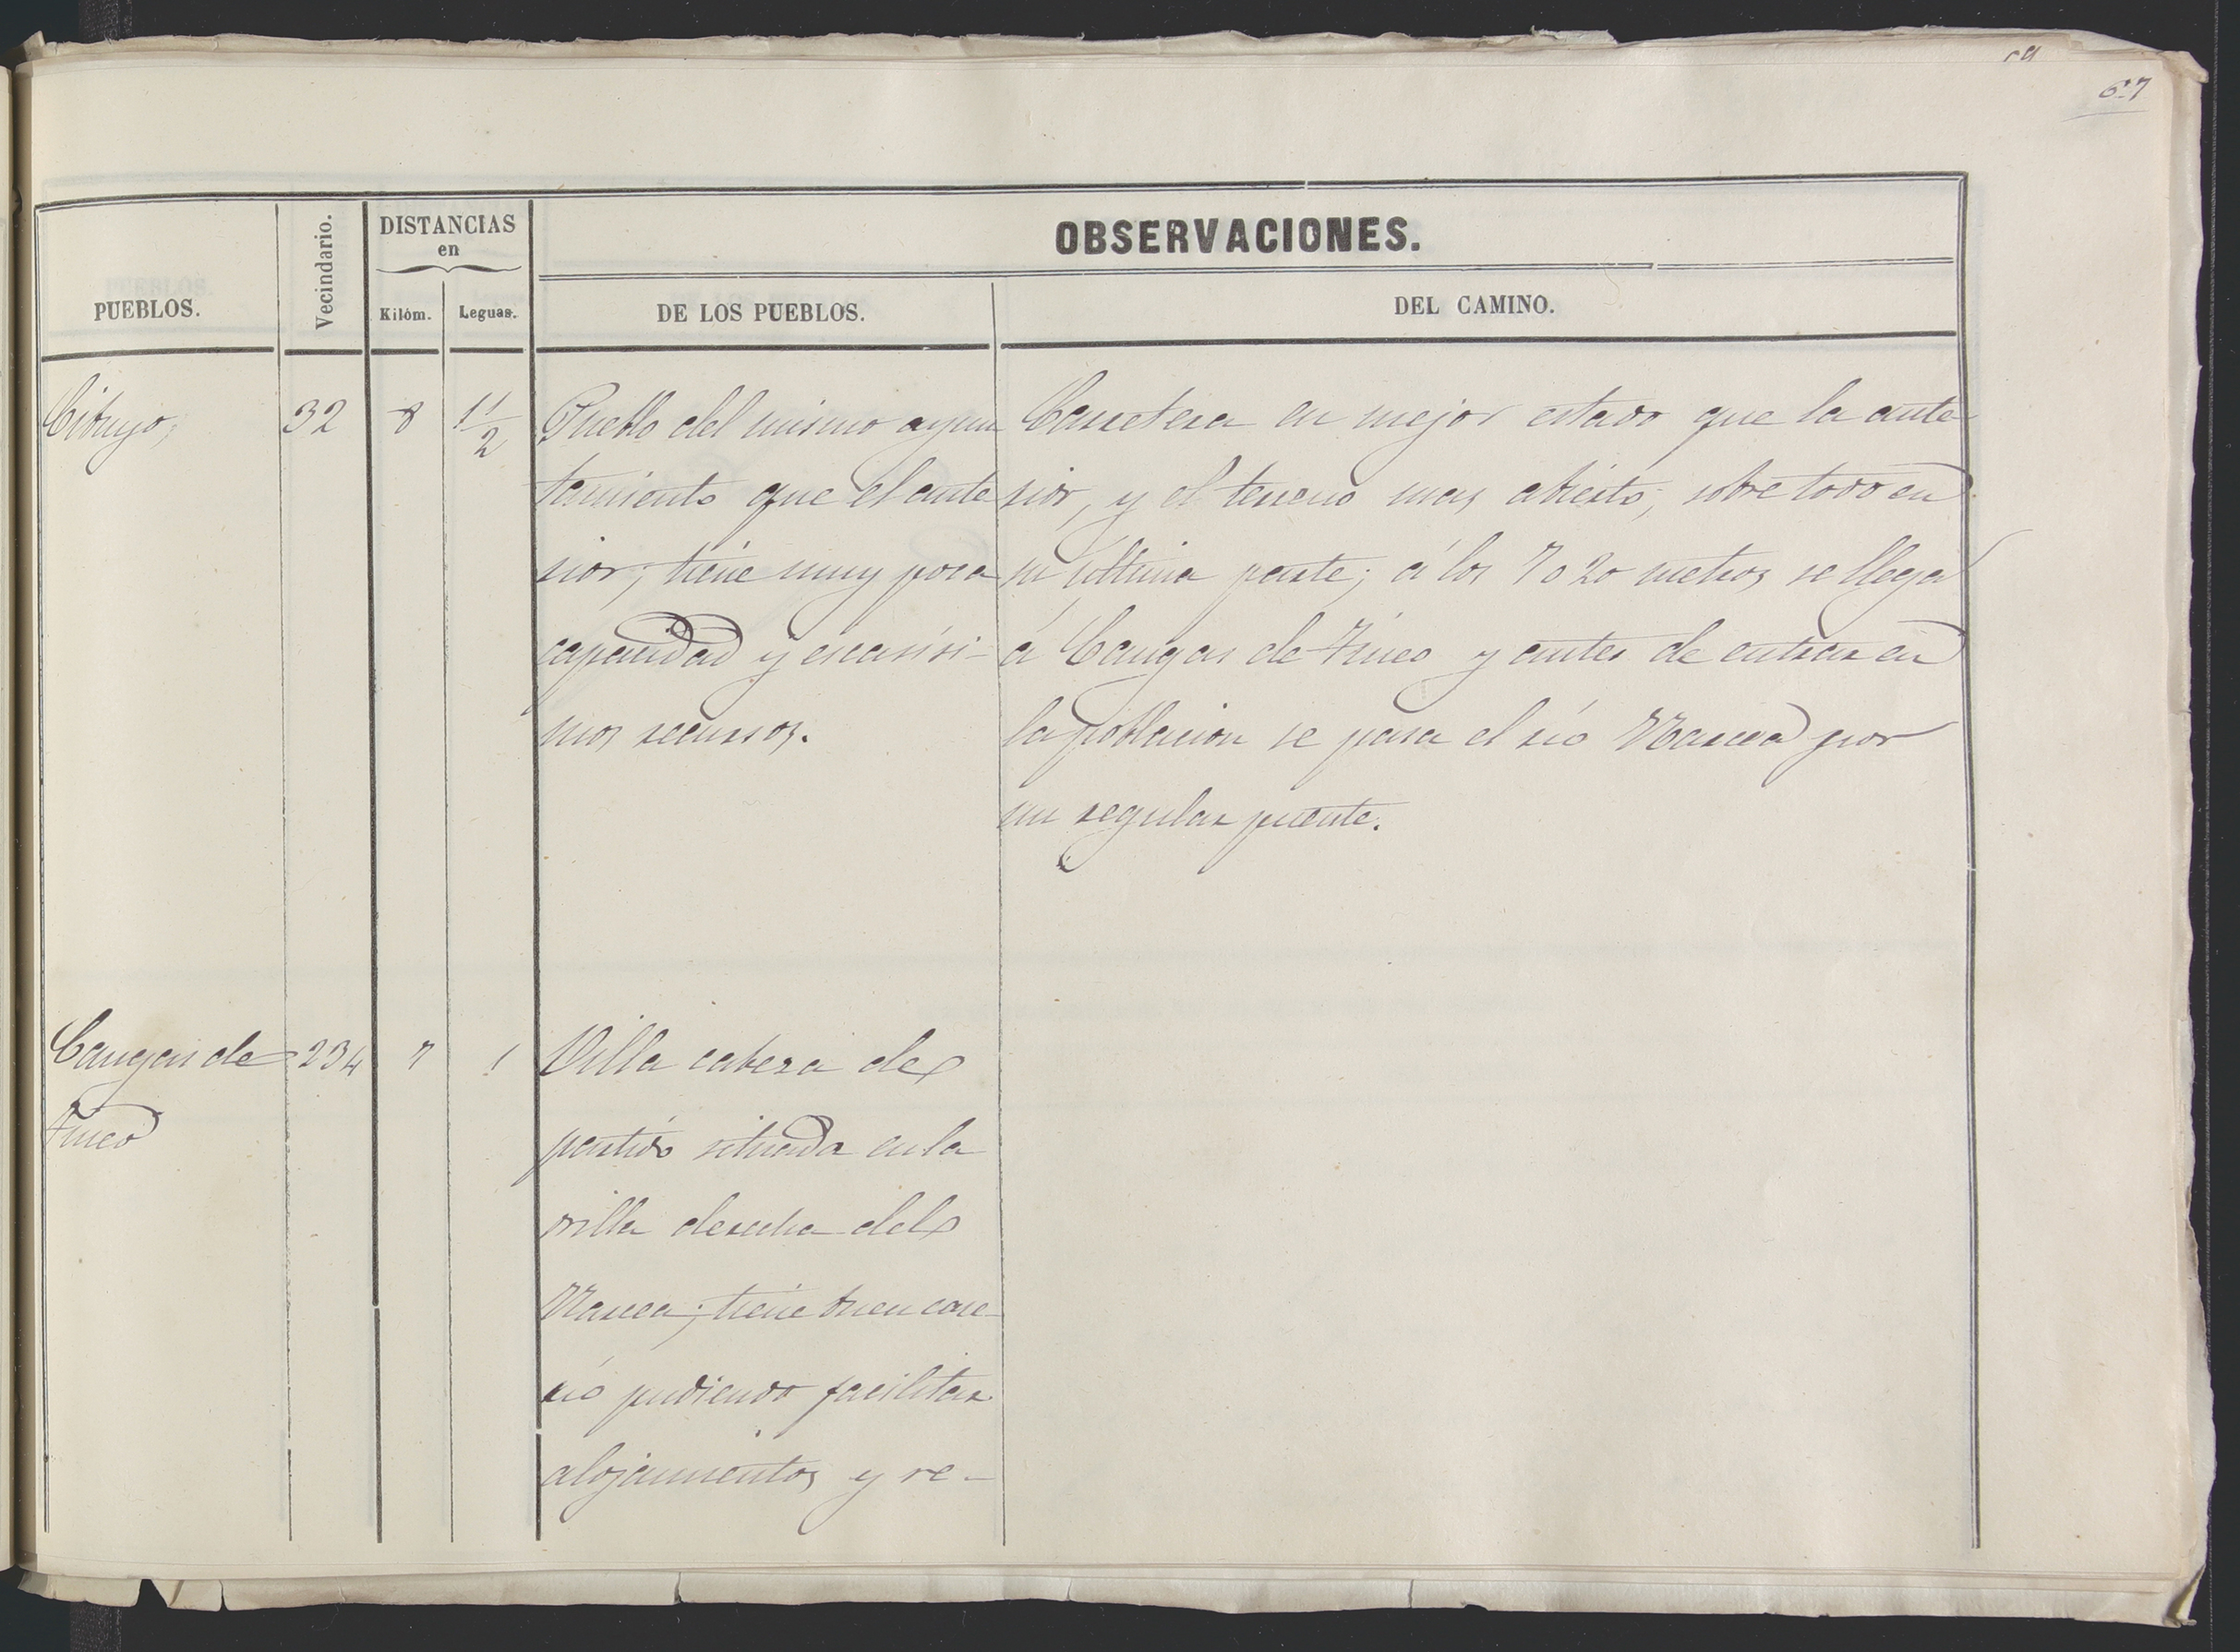 67
OBSERVACIONES.
PUEBLOS.
Vecindario.
DISTANCIAS
en
Kilóm.
Leguas.
DE LOS PUEBLOS.
DEL CAMINO.
Cibuyo,
32
8
1 1/2
Pueblo del mismo ayun
tamiento que el ante
rior; tiene muy poca
capacidad y escasisi-
mos recursos.
Carretera en mejor estado que la ante-
rior, y el terreno mas abierto, sobre todo en
su última parte; á los 7020 metros se llega
á Cangas de Tineo y antes de entrar en
la poblacion se pasa el río Narcea por
un regular puente.
Cangas de
Tineo
234
7
1
Villa cabeza de
partido situada en la
orilla derecha del
Narcea; tiene buen case-
río pudiendo facilitar
alojamientos y re-